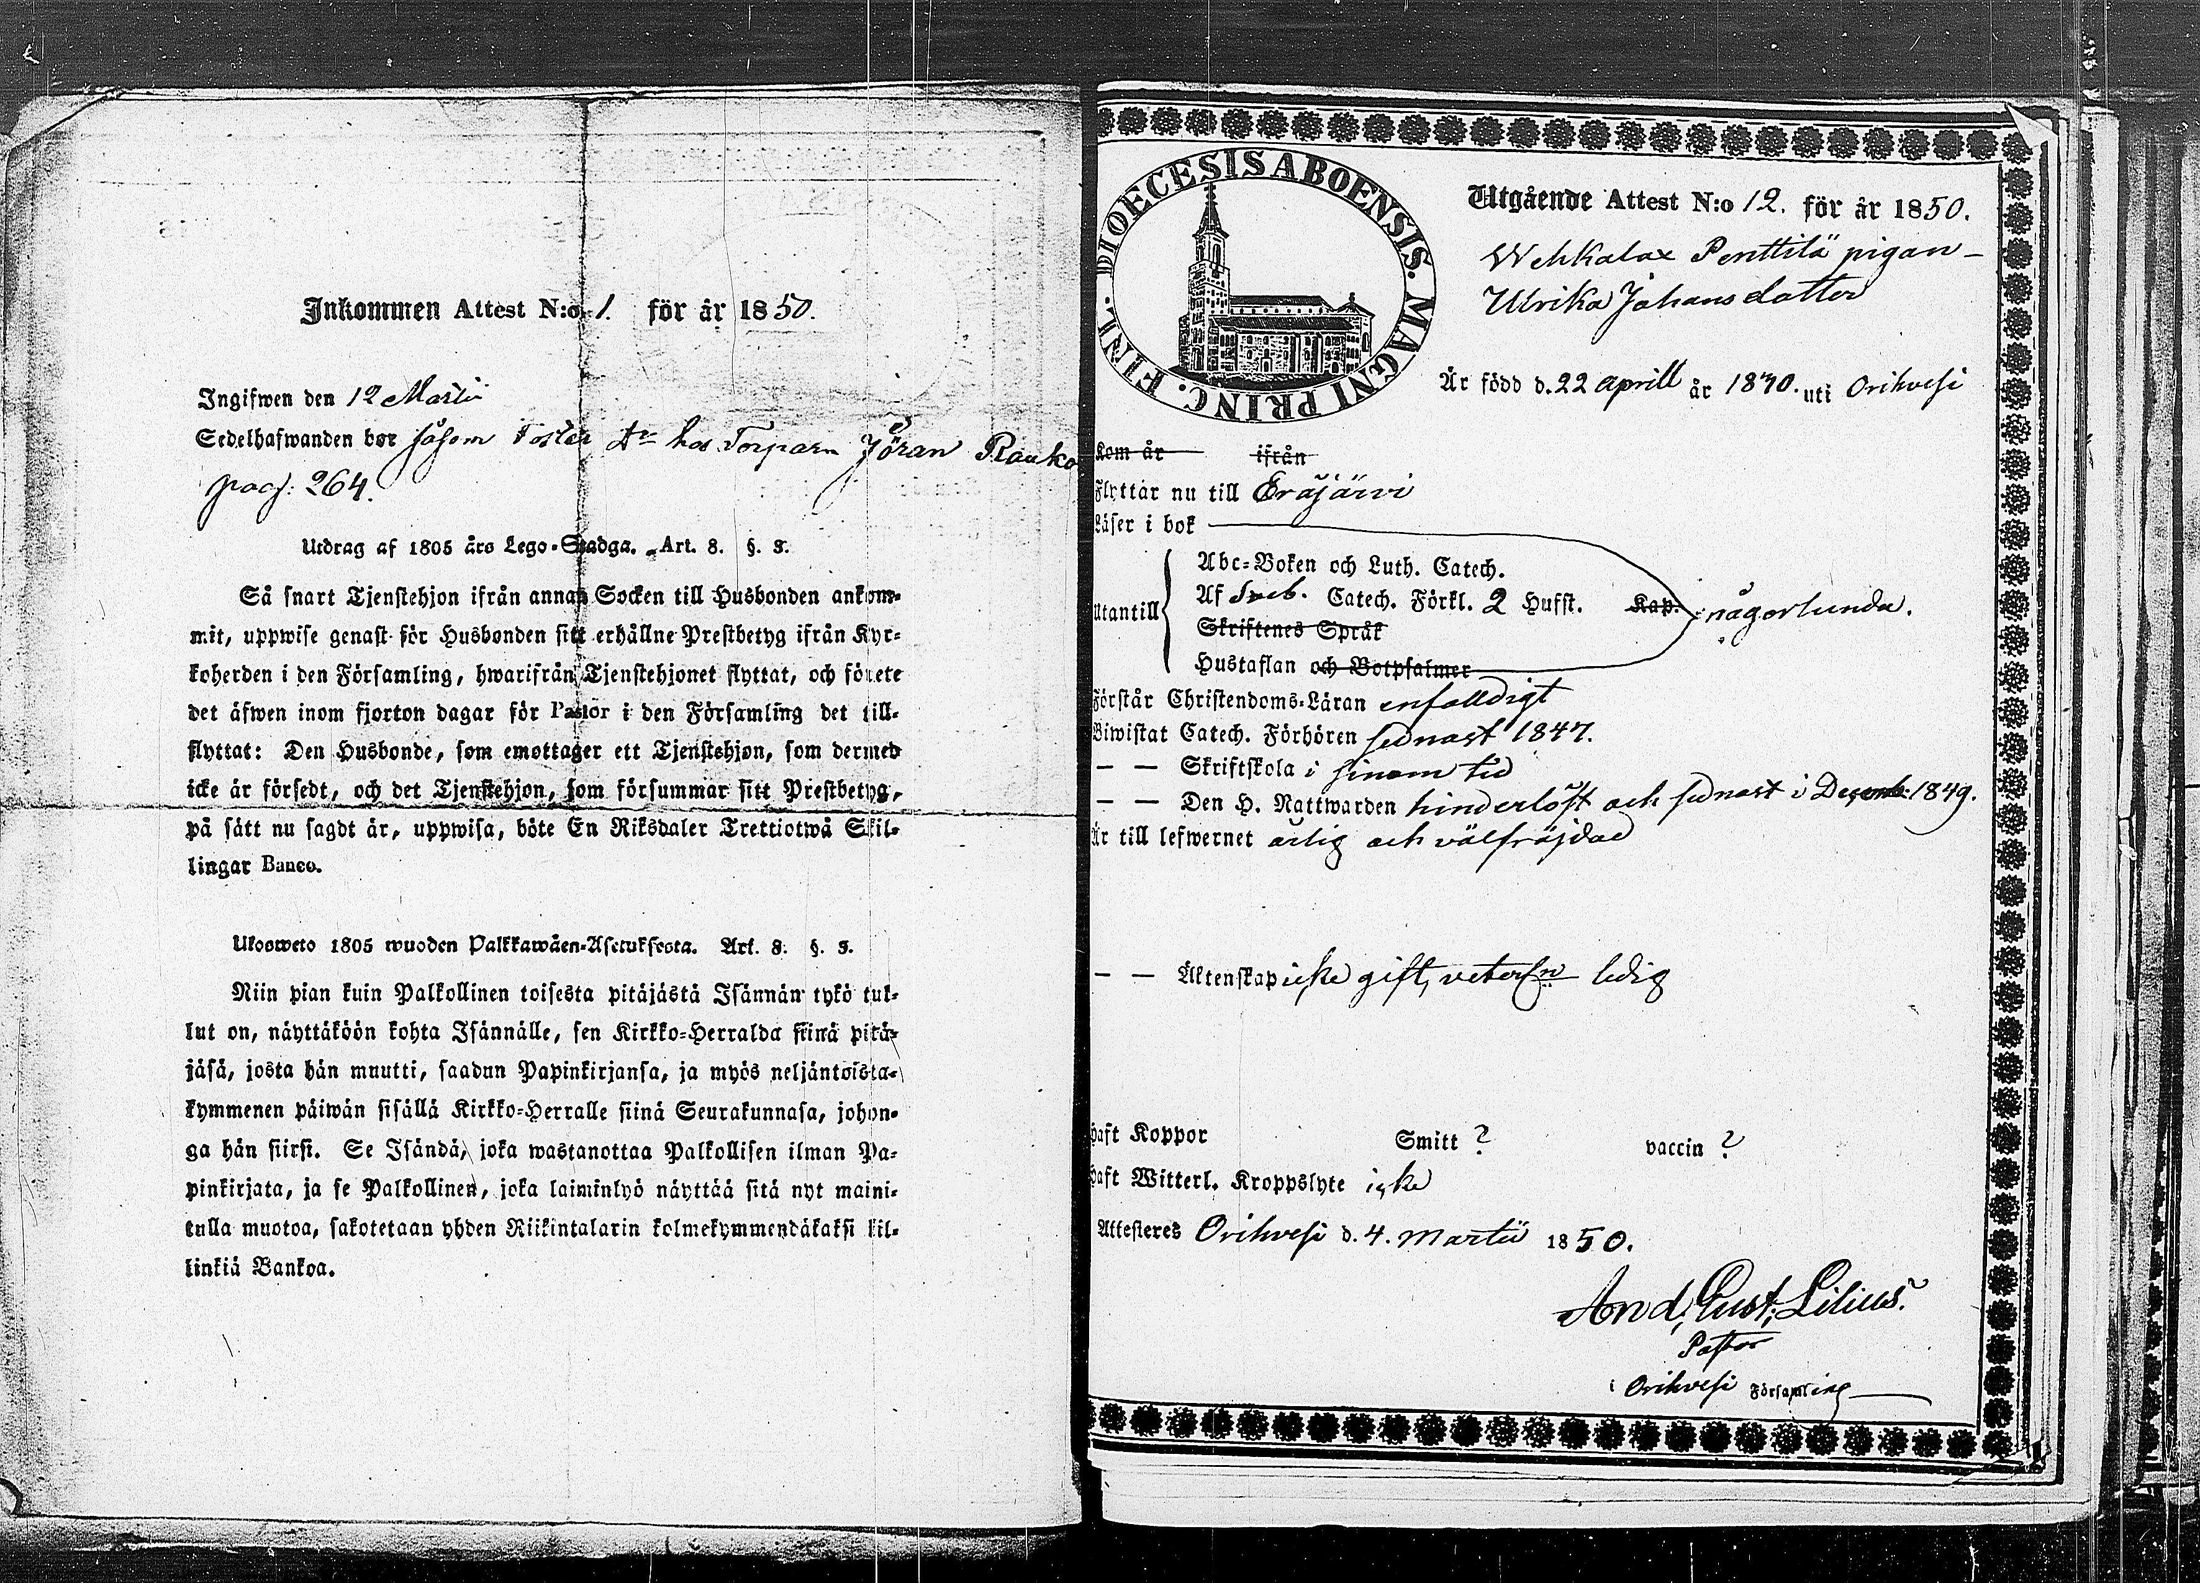 Inkommen Attest N:o 1. för år 1850.
Ingifwen den 12 Martii
Sedelhafwanden bor såsom hos Torparn Jöran Rauko
pag: 264.
Utdrag af 1805 års Lego-Stadga. Art. 8. §. 3.
Så snart Tjenstehjon ifrån annan Socken till Husbonden ankom-
mit, uppwise genast för Husbonden sitt erhållne Prestbetyg ifrån Kyr-
koherden i den Församling, hwarifrån Tjenstehjonet flyttat, och förete
det äfwen inom fjorton dagar för Pastor i den Församling det till-
flyttat: Den Husbonde, som emottager ett Tjenstehjon, som dermed
icke är försedt, och det Tjenstehjon, som försummar sitt Prestbetyg,
på sätt nu sagdt är, uppwisa, böte En Riksdaler Trettiotwå Skil-
lingar Banco.
Ulosweto 1805 wuoden Palkkawäen-Asetuksesta. Art. 8. §. 3.
Niin pian kuin Palkollinen toisesta pitäjästä Isännän tykö tul-
lut on, näyttäköön kohta Isännälle, sen Kirkko-Herralda siinä pitä-
jäsä, josta hän muutti, saadun Papinkirjansa, ja myös neljäntoista-
kymmenen päiwän sisällä Kirkko-Herralle siinä Seurakunnasa, johon-
ga hän siirsi. Se Isändä, joka wastanottaa Palkollisen ilman Pa-
pinkirjata, ja se Palkollinen, joka laiminlyö näyttää sitä nyt maini-
tulla muotoa, sakotetaan yhden Riikintalarin kolmekymmendäkaksi kil-
linkiä Bankoa.
DIOECESIS ABOENSIS. MAGNI PRINC. FINL.
Utgående Attest N:o 12. för år 1850.
Wehkalax Penttilä pigan
Ulrika Johansdotter
Är född d. 22 aprill år 18 uti Orihvesi
Kom år ifrån
Flyttar nu till Eräjärvi
Läser i bok
Abc-Boken och Luth. Catech.
Utantill Af Sveb. Catech. Förkl. 2 Hufst. Kap. någorlunda.
Skriftenes Språk
Hustaflan och Botpsalmer
Förstår Christendoms-Läran enfalldigt
Biwistat Catech. Förhören sednast 1847.
— — Skriftskola i sinom tid
— — Den H. Nattwarden hinderlöst och sednast i Decemb: 1849.
Är till lefwernet ärlig och välfräjdad
— — Äktenskap icke gift, ledig
Haft Koppor Smitt ? vaccin ?
Haft Witterl. Kroppslyte icke
Attesteres Orihvesi d. 4. Martii 1850.
And. Gust. Lilius.
Pastor
i Orihvesi Församling